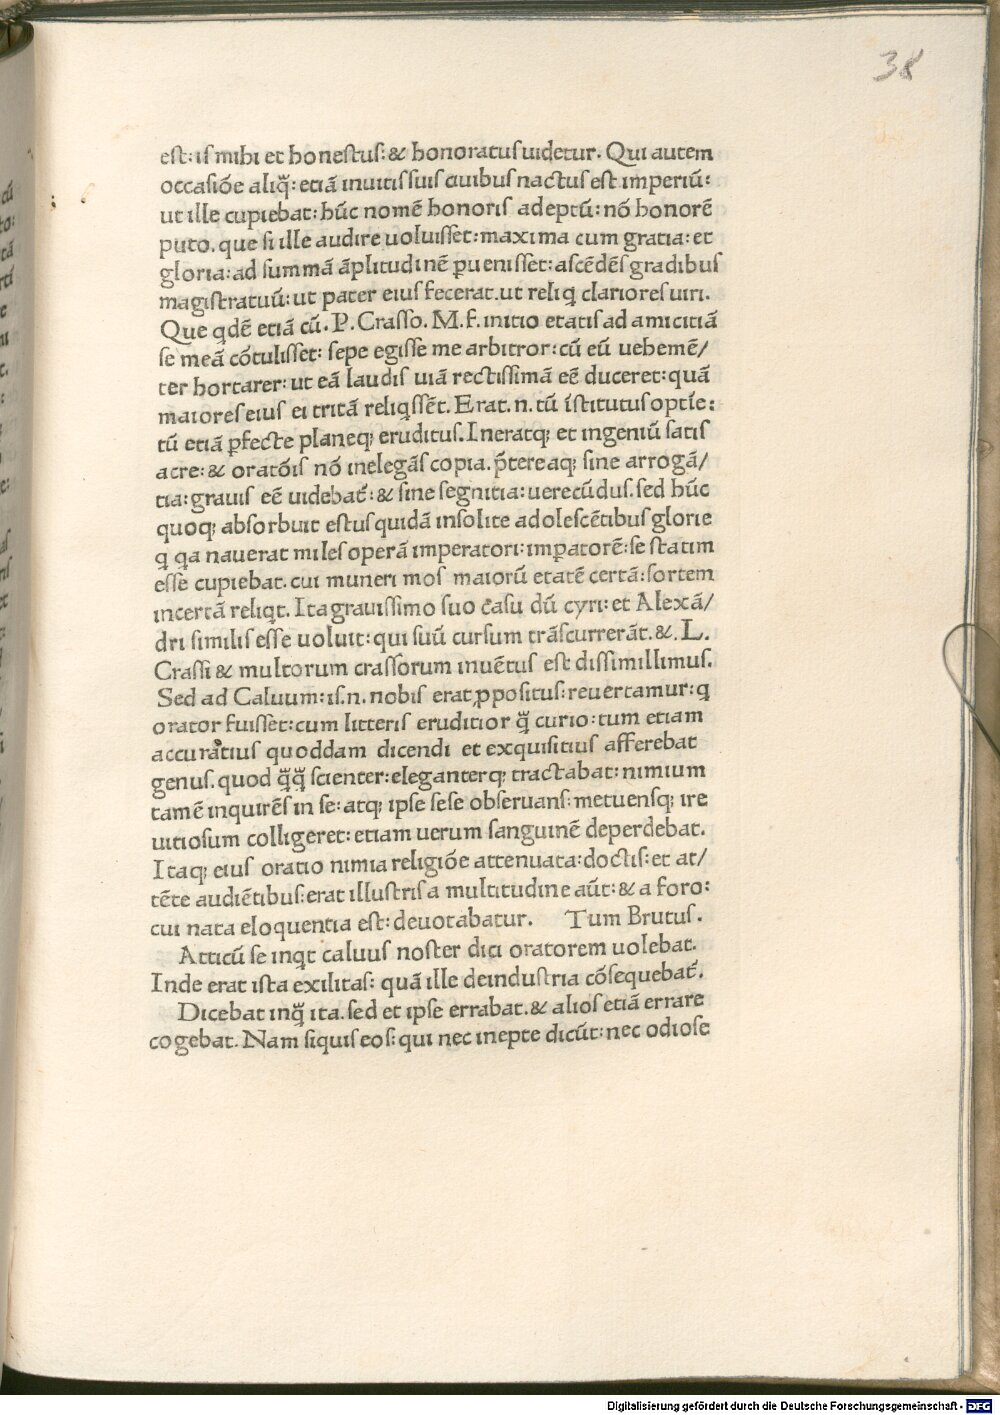 38
eſt: iſ mihi et honeſtuſ: & honoratuſ uidetur. Qui autem
occaſiõe aliq̃: etiã inuitiſ ſuiſ ciuibuſ nactuſ eſt imperiũ:
ut ille cupiebat: hũc nomẽ honoriſ adeptũ: nõ honorẽ
puto. que ſi ille audire uoluiſſet: maxima cum gratia: et
gloria: ad ſummã ãplitudinẽ ꝑueniſſet: aſcẽdẽſ gradibuſ
magiſtratuũ: ut pater eiuſ fecerat. ut reliq clarioreſ uiri.
Que qdẽ etiã cũ. P. Craſſo. M. f. initio etatiſ ad amicitiã
ſe meã cõtuliſſet: ſepe egiſſe me arbitror: cũ eũ uehemẽ/
ter hortarer: ut eã laudiſ uiã rectiſſimã eẽ duceret: quã
maioreſ eiuſ ei tritã reliqſſẽt. Erat. n. tũ ĩſtitutuſ optĩe:
tũ etiã ꝑfecte planeqꝫ erudituſ. Ineratqꝫ et ingeniũ ſatiſ
acre: & oratõiſ nõ inelegãſ copia. p̃tereaqꝫ ſine arrogã/
tia: grauiſ eẽ uidebat̃: & ſine ſegnitia: uerecũduſ. ſed hũc
quoqꝫ abſorbuit eſtuſ quidã inſolite adoleſcẽtibuſ glorie
q qa nauerat mileſ operã imperatori: imꝑatorẽ: ſe ſtatim
eſſe cupiebat. cui muneri moſ maiorũ etatẽ certã: ſortem
incertã reliqt. Ita grauiſſimo ſuo caſu dũ cyri: et Alexã/
dri ſimiliſ eſſe uoluit: qui ſuũ curſum trãſcurrerãt. &. L.
Craſſi & multorum craſſorum inuẽtuſ eſt diſſimillimuſ.
Sed ad Caluum: iſ. n. nobiſ erat ꝓpoſituſ: reuertamur: q
orator fuiſſet: cum litteriſ eruditior q̃ curio: tum etiam
accuratiuſ quoddam dicendi et exquiſitiuſ afferebat
genuſ. quod q̃q̃ ſcienter: eleganterqꝫ tractabat: nimium
tamẽ inquirẽſ in ſe: atqꝫ ipſe ſeſe obſeruanſ: metuenſqꝫ ire
uitioſum colligeret: etiam uerum ſanguinẽ deperdebat.
Itaqꝫ eiuſ oratio nimia religiõe attenuata: doctiſ: et at/
tẽte audiẽtibuſ: erat illuſtriſ a multitudine aũt: & a foro:
cui nata eloquentia eſt: deuotabatur. Tum Brutuſ.
Atticũ ſe inqt caluuſ noſter dici oratorem uolebat.
Inde erat iſta exilitaſ: quã ille deinduſtria cõſequebat̃.
Dicebat inq̃ ita. ſed et ipſe errabat. & alioſ etiã errare
cogebat. Nam ſiquiſ eoſ: qui nec inepte dicũt: nec odioſe
Digitalisierung gefördert durch die Deutsche Forschungsgemeinschaft - DFG